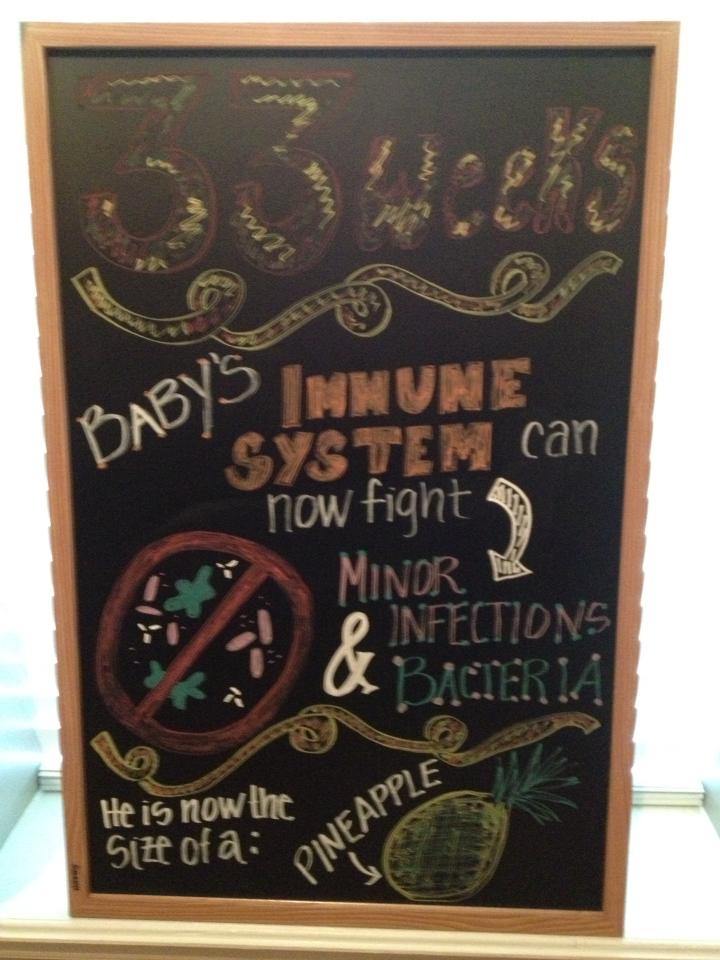 33 Weeks
BABY'S IMMUNE
SYSTEM can
now fight
MINOR
INFECTIONS
& BACTERIA
He is now the
size of a:
PINEAPPLE